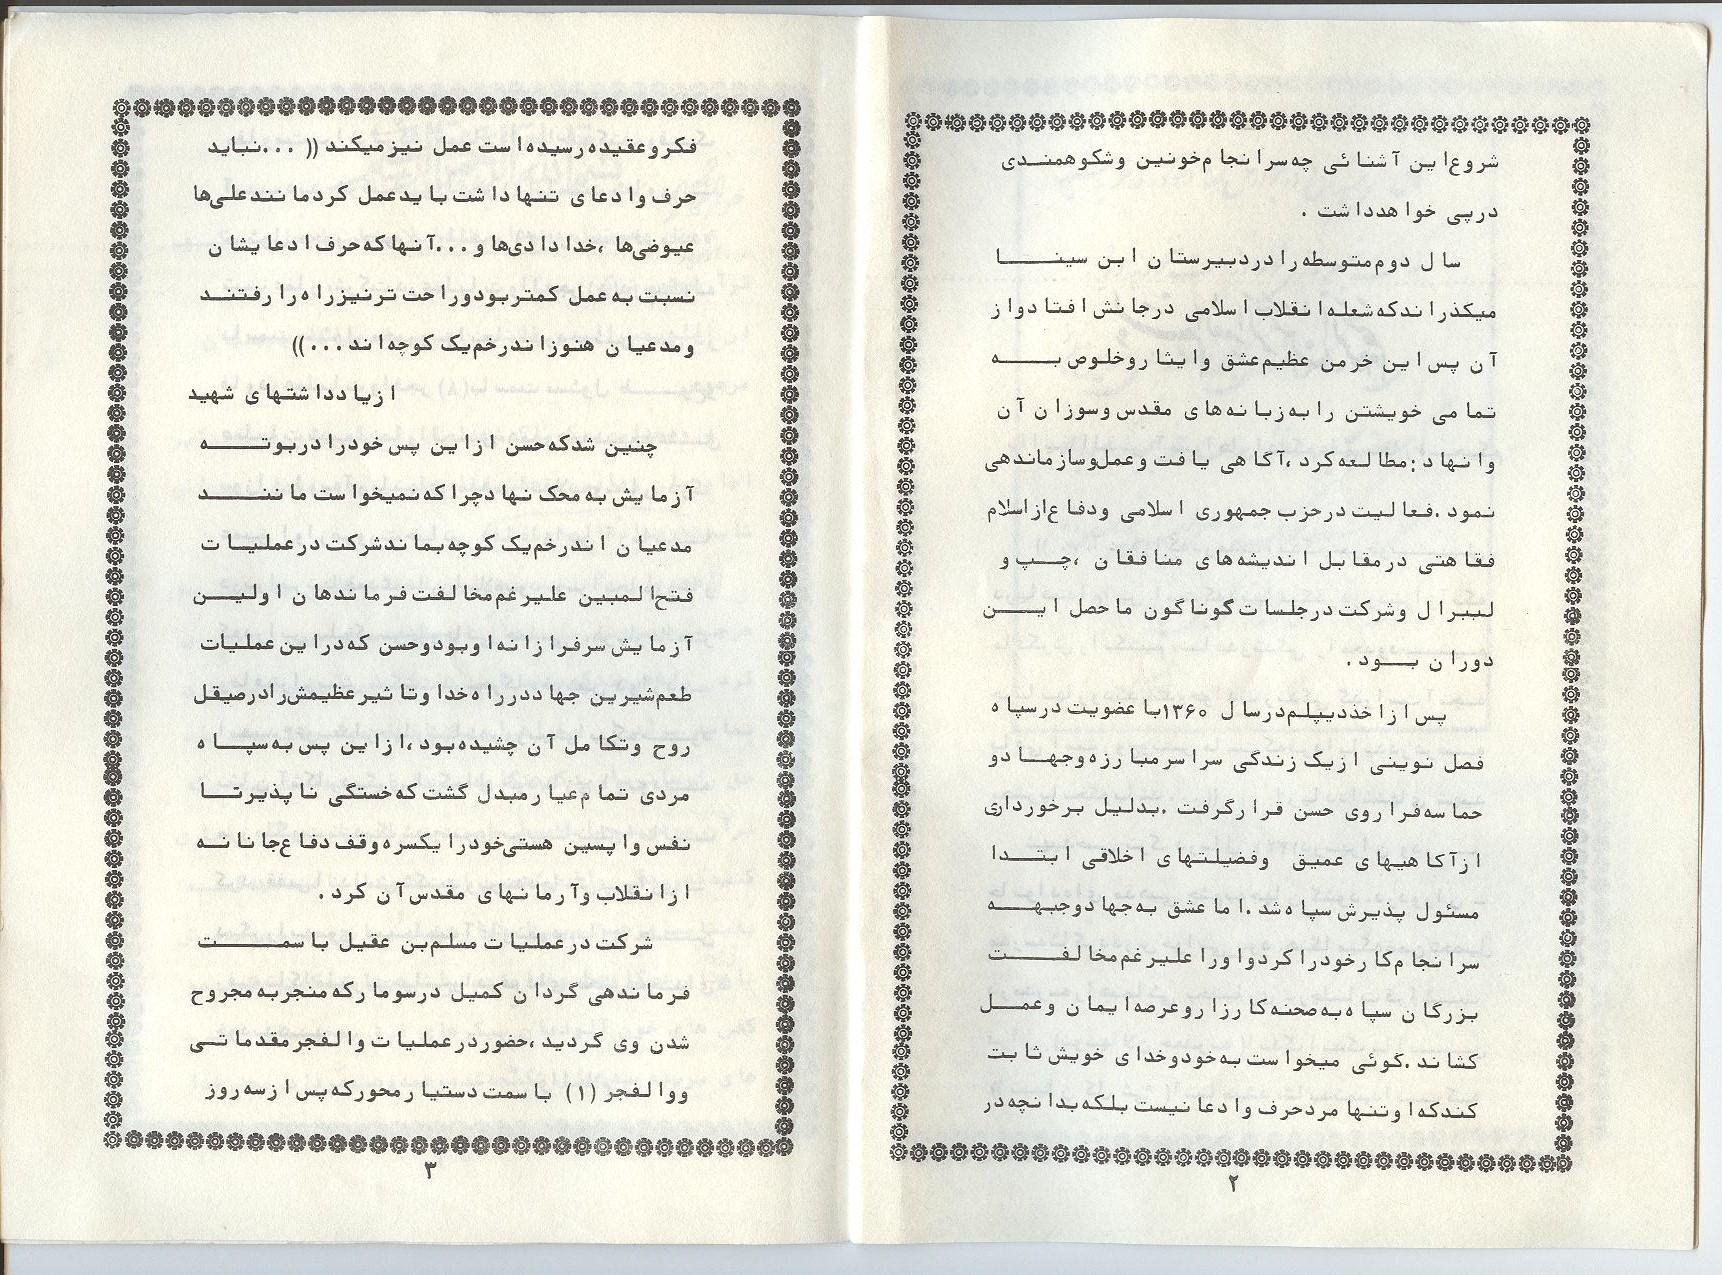 شروع این آشنائی چه سرانجام خونین وشکوهمندی
درپی خواهد داشت .
سال دوم متوسطه را دردبیرستان ابن سینا
میگذراند که شعله انقلاب اسلامی درجانش افتاد واز
آن پس این خرمن عظیم عشق وایثار وخلوص به
تمامی خویشتن را به زبانه های مقدس وسوزان آن
وانهاد : مطالعه کرد ،آگاهی یافت وعمل وسازماندهی
نمود .فعالیت درحزب جمهوری اسلامی ودفاع از اسلام
فقاهتی درمقابل اندیشه های منافقان ،چپ و
لیبرال وشرکت درجلسات گوناگون ماحصل این
دوران بود .
پس ازاخذ دیپلم درسال ۱۳۶۰ با عضویت درسپاه
فصل نوینی ازیک زندگی سراسر مبارزه وجهاد و
حماسه فراروی حسن قرارگرفت .بدلیل برخورداری
ازآگاهیهای عمیق وفضیلتهای اخلاقی ابتدا
مسئول پذیرش سپاه شد .اما عشق به جهاد وجبهه
سرانجام کارخود را کرد واورا علیرغم مخالفت
بزرگان سپاه به صحنه کارزار وعرصه ایمان وعمل
کشاند .گوئی میخواست به خود وخدای خویش ثابت
کند که اوتنها مرد حرف وادعا نیست بلکه بدانچه در
۲
فکر وعقیده رسیده است عمل نیز میکند (( ...نباید
حرف وادعای تنها داشت باید عمل کرد مانند علی‌ها
عیوضی‌ها ،خدادادی‌ها و ...آنها که حرف ادعایشان
نسبت به عمل کمتر بود وراحت تر نیز راه را رفتند
ومدعیان هنوز اندرخم یک کوچه اند ...))
ازیادداشتهای شهید
چنین شد که حسن ازاین پس خود را دربوته
آزمایش به محک نهاد چرا که نمیخواست مانند
مدعیان اندرخم یک کوچه بماند شرکت درعملیات
فتح المبین علیرغم مخالفت فرماندهان اولین
آزمایش سرفرازانه اوبود وحسن که دراین عملیات
طعم شیرین جهاد درراه خدا وتاثیر عظیمش را درصیقل
روح وتکامل آن چشیده بود ،ازاین پس به سپاه
مردی تمام عیار مبدل گشت که خستگی ناپذیر تا
نفس واپسین هستی خود را یکسره وقف دفاع جانانه
ازانقلاب وآرمانهای مقدس آن کرد .
شرکت درعملیات مسلم بن عقیل با سمت
فرماندهی گردان کمیل درسومار که منجر به مجروح
شدن وی گردید ،حضور درعملیات والفجر مقدماتی
ووالفجر (۱) با سمت دستیار محور که پس ازسه روز
۳